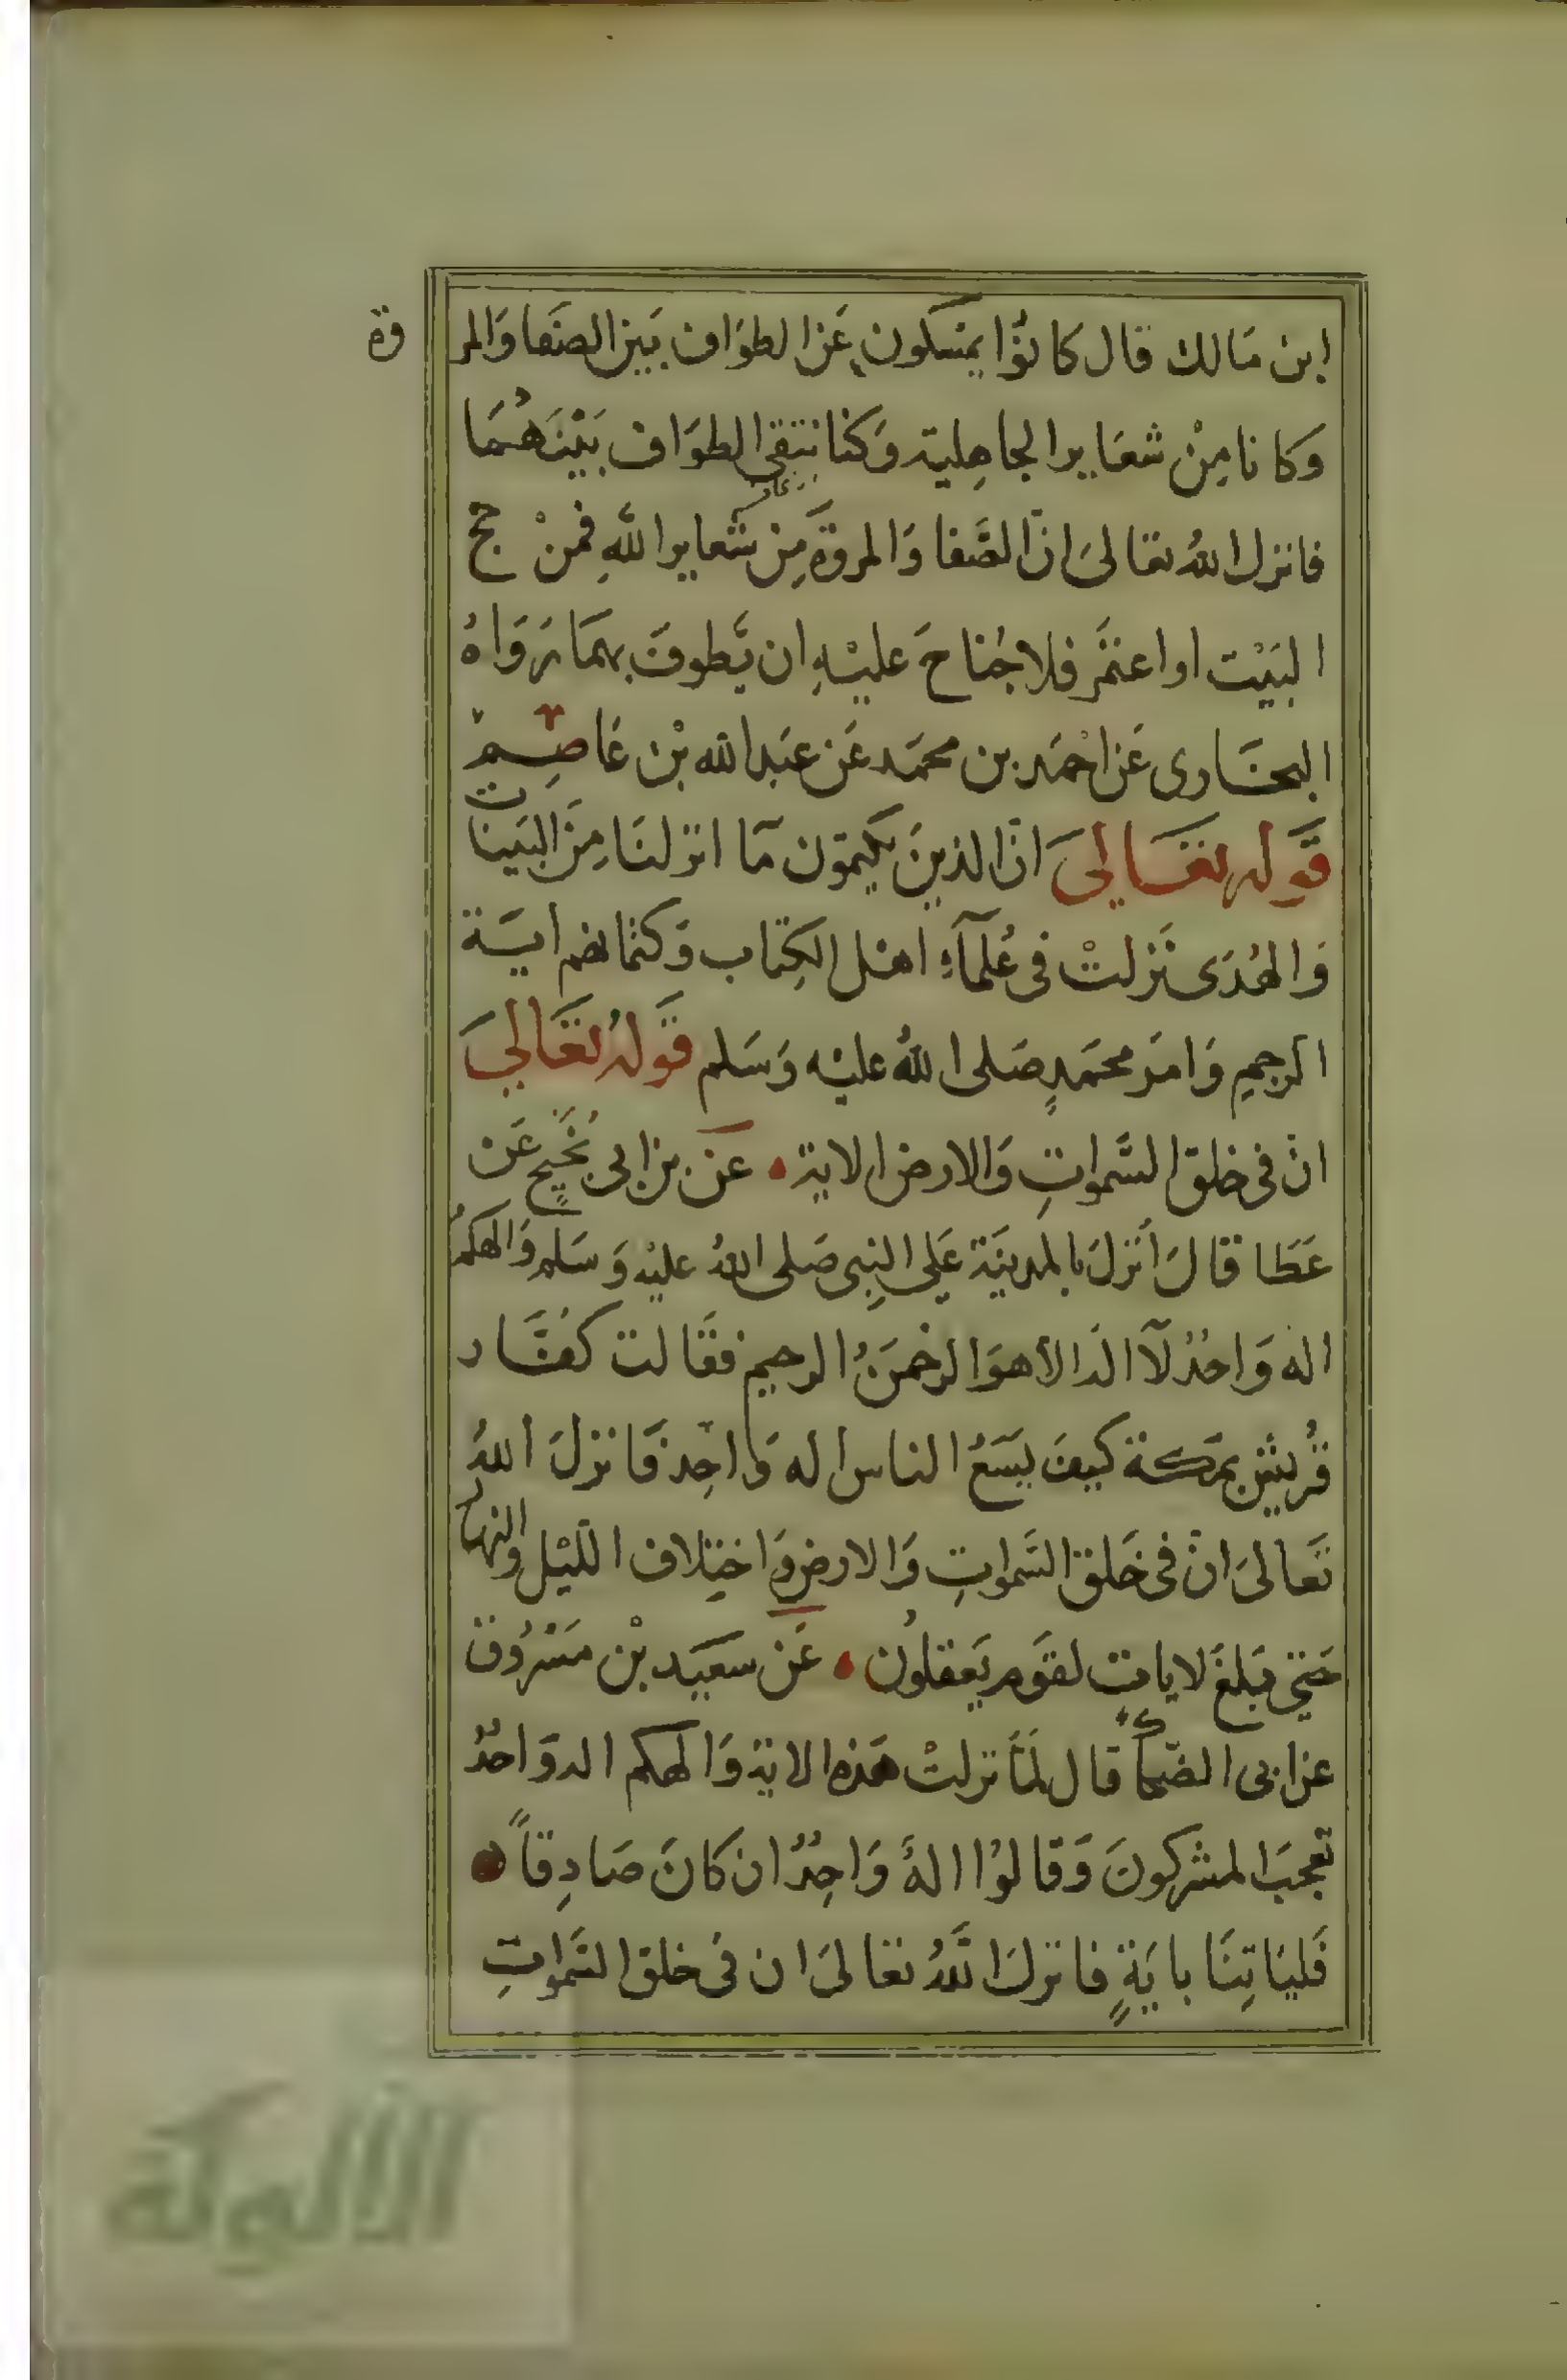 ابن مَالك قال كانوُا يمسكون عَن الطوَاف بَين الصَفا وَالمروة
وَكانا مِنْ شعَاير الجاهِلية وَكنا نتقي الطوَاف بَيْنَهُمَا
فانزل اللهُ تعَالىَ انّ الصَّفا وَالمروةَ مِن شَعاير اللهِ فمنْ حج
البَيْت او اعتمَر فلا جُناحَ عليْهِ ان يَّطوفَ بهمَا رَوَاهُ
البخَارى عَن احْمَد بن محمَد عَن عَبد الله بْن عَاصِم
قَوله تعَالىَ انّ الذينَ يكتمون مَا انزلنَا مِنَ البَينات
وَالهُدَى نَزلتْ فى عُلمآءِ اهل الكِتاب وَكتمانهم ايَة
الرجمِ وَامَر محمَدٍ صَلى اللهُ عليْه وَسَلم قَولهُ تعَالىَ
انّ فى خلق السَّمواتِ وَالارض الاية عَن بن ابى نجَيحٍ عَن
عَطَا قالَ أنزلَ بالمدينَة عَلي النِبى صَلى اللهُ عليْه وَسَلم وَالهكمُ
اله وَاحدُ لآ اله الا هوَ الرحْمَنُ الرحيم فقَالت كفَّار
قُريْش بمَكة كيفَ يَسَعُ الناس اله وَاحِد فَانزلَ اللهُ
تَعالىَ انّ فى خَلق السَّمواتِ وَالارض وَاختِلاف اللَيْل والنهار
حَتي بَلغَ لايات لقَوم يَعقلوُن عَن سعيَد بْن مَسْرُوق
عن ابى الضحاك قال لمَّا نزلتْ هَذه الاية وَالهكم اله وَاحدُ
تعجبَ المشركونَ وَقالوُا الهُ وَاحِدُ ان كانَ صَادِقاً
فَليَاتِنَا بايَةٍ فانزلَ اللهُ تعالىَ ان فى خلق السَّمواتِ
الألوكة